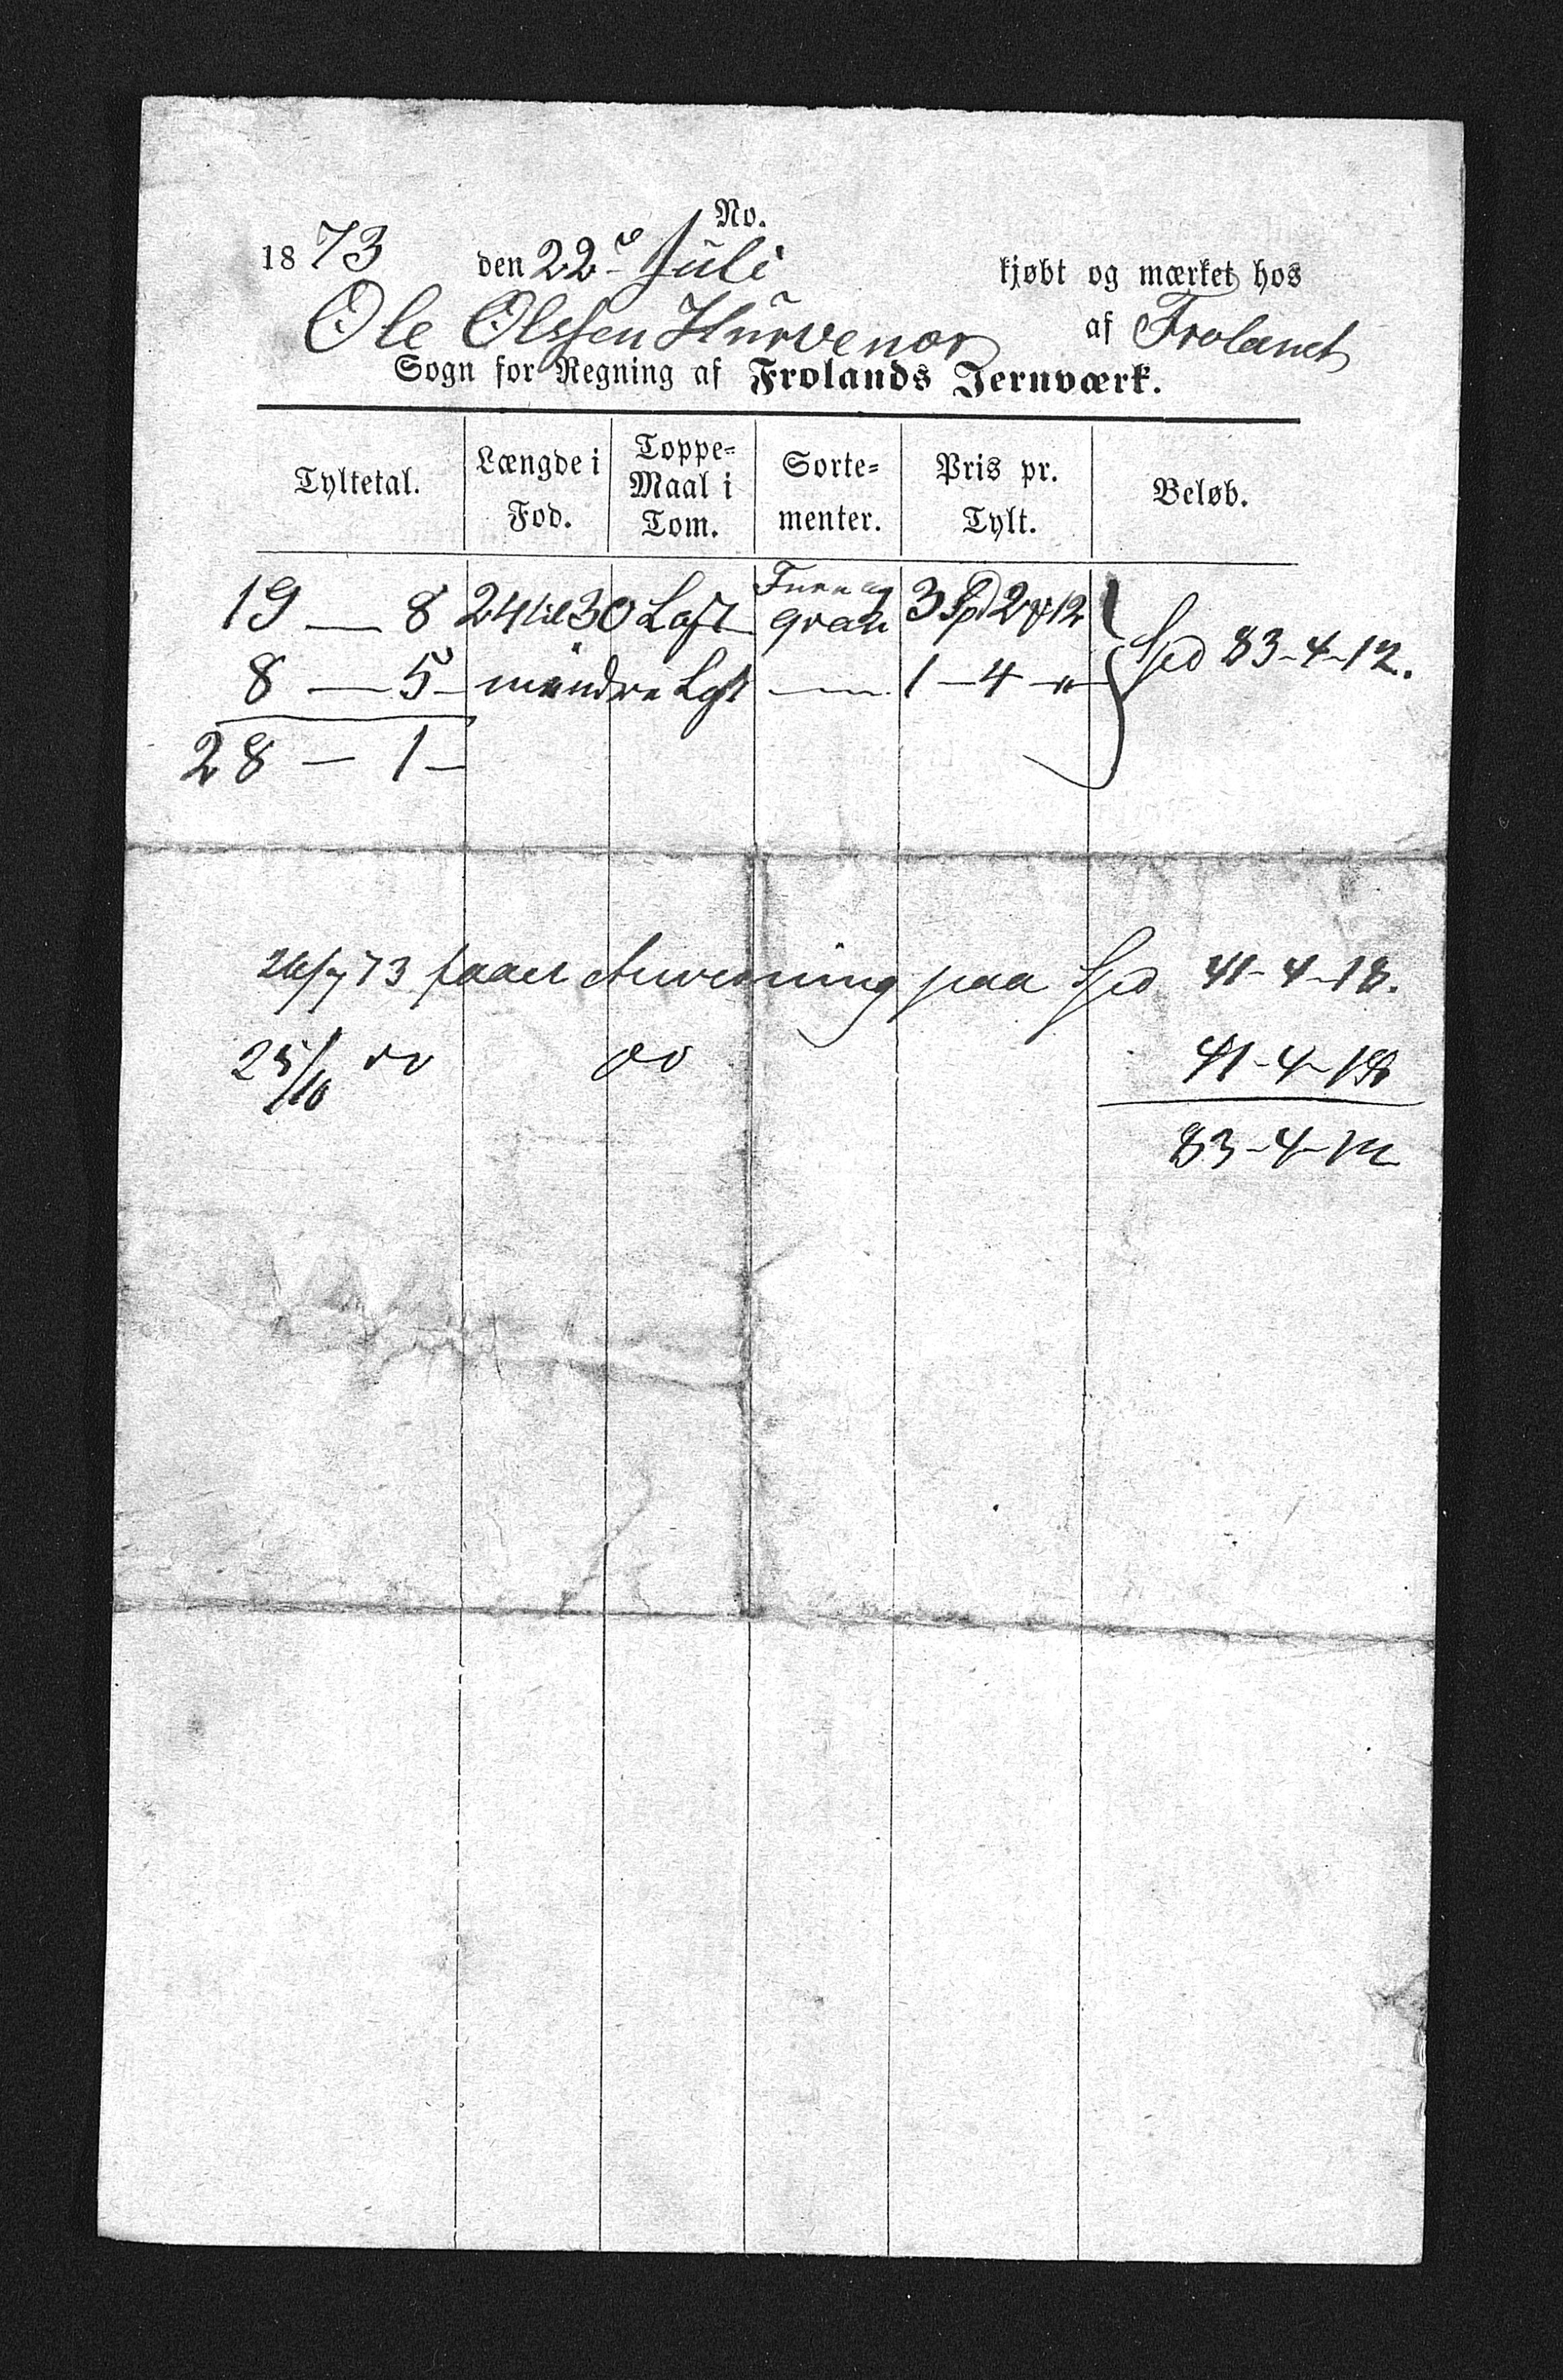 No.
1873 den 22de Juli kjøbt og mærket hos
Ole Olssen Hurvenæs af Froland
Sogn for Regning af Frolands Jernværk.
Tyltetal. Længde i Fod. Toppe=Maal i Tom. Sorte=menter. Pris pr. Tylt. Beløb.
19 — 8 24 til 30 Lgt Furu og gran 3 Spd 2 # 12
8 — 5 — mindre Lgt — 1 — 4 — " Spd 83-4-12.
28 — 1 —
26/7 73 faaet Anvisning paa Spd 41-4-18.
25/10 do do 41-4-18
83-4-12